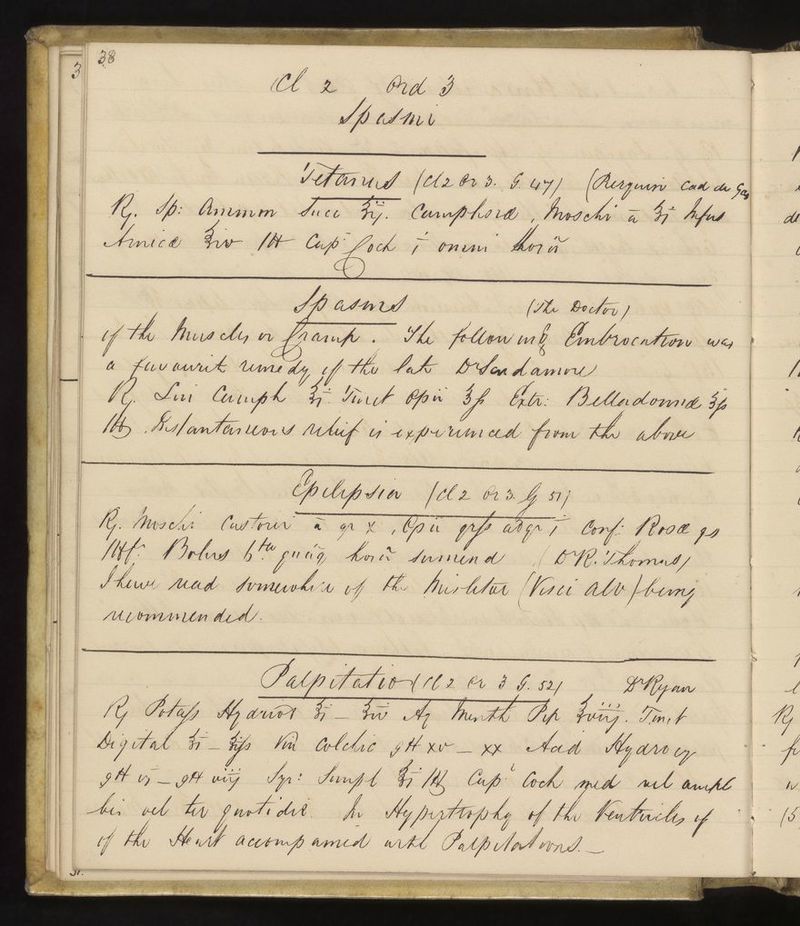 38
Cl 2 Ord 3
Spasmi
Tetanus (Cl 2 Or 3. G. 47) (Perquin
℞. Sp: Ammon Succ ʒij. Camphoræ, Moschi a ʒi Infus
Arnicæ ℥iv M Cap Coch i omni horâ
Spasms (The Doctor)
of the Muscles or Cramp. The following Embrocation was
a favourit remedy of the late Dr Scudamore
℞. Lini Camph ℥i Tinct Opii ʒſs Extr: Belladonnæ ʒſs
M. Instantaneous relief is experienced from the above
Epilepsia (Cl 2 Or 3. G 51)
℞. Moschi Castorei a gr x, Opii grſs ad gr i Conf: Rosæ qs
Mft Bolus 6tâ quâq horâ sumend (Dr R. Thomas)
I have read somewhere of the Misletoe (Visci Alb) being
recommended.
Palpitatio (Cl 2 Or 3 G. 52) Dr Ryan
℞ Potaſs Hydriod ʒi – ʒiv Aq Menth Pip ℥viij. Tinct
Digital ʒi – ʒijſs Vin Colchic gtt xv – xx Acid Hydrocy
gtt vi – gtt viij Syr: Simpl ℥i M Cap Coch med vel ampl
bis vel ter quotidie. In Hypertrophy of the Ventricles of
of the Heart accompanied with Palpitations. –